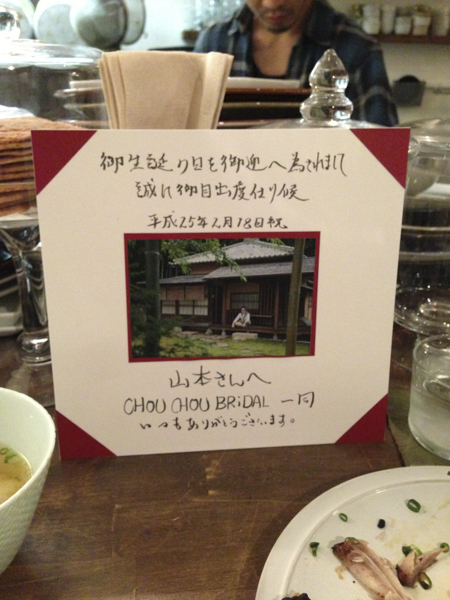 御生誕り日を御迎へ為されまして
誠に御目出度仕り候
平成25年2月18日祝
山本さんへ
CHOU CHOU BRiDAL 一同
いつもありがとうございます。